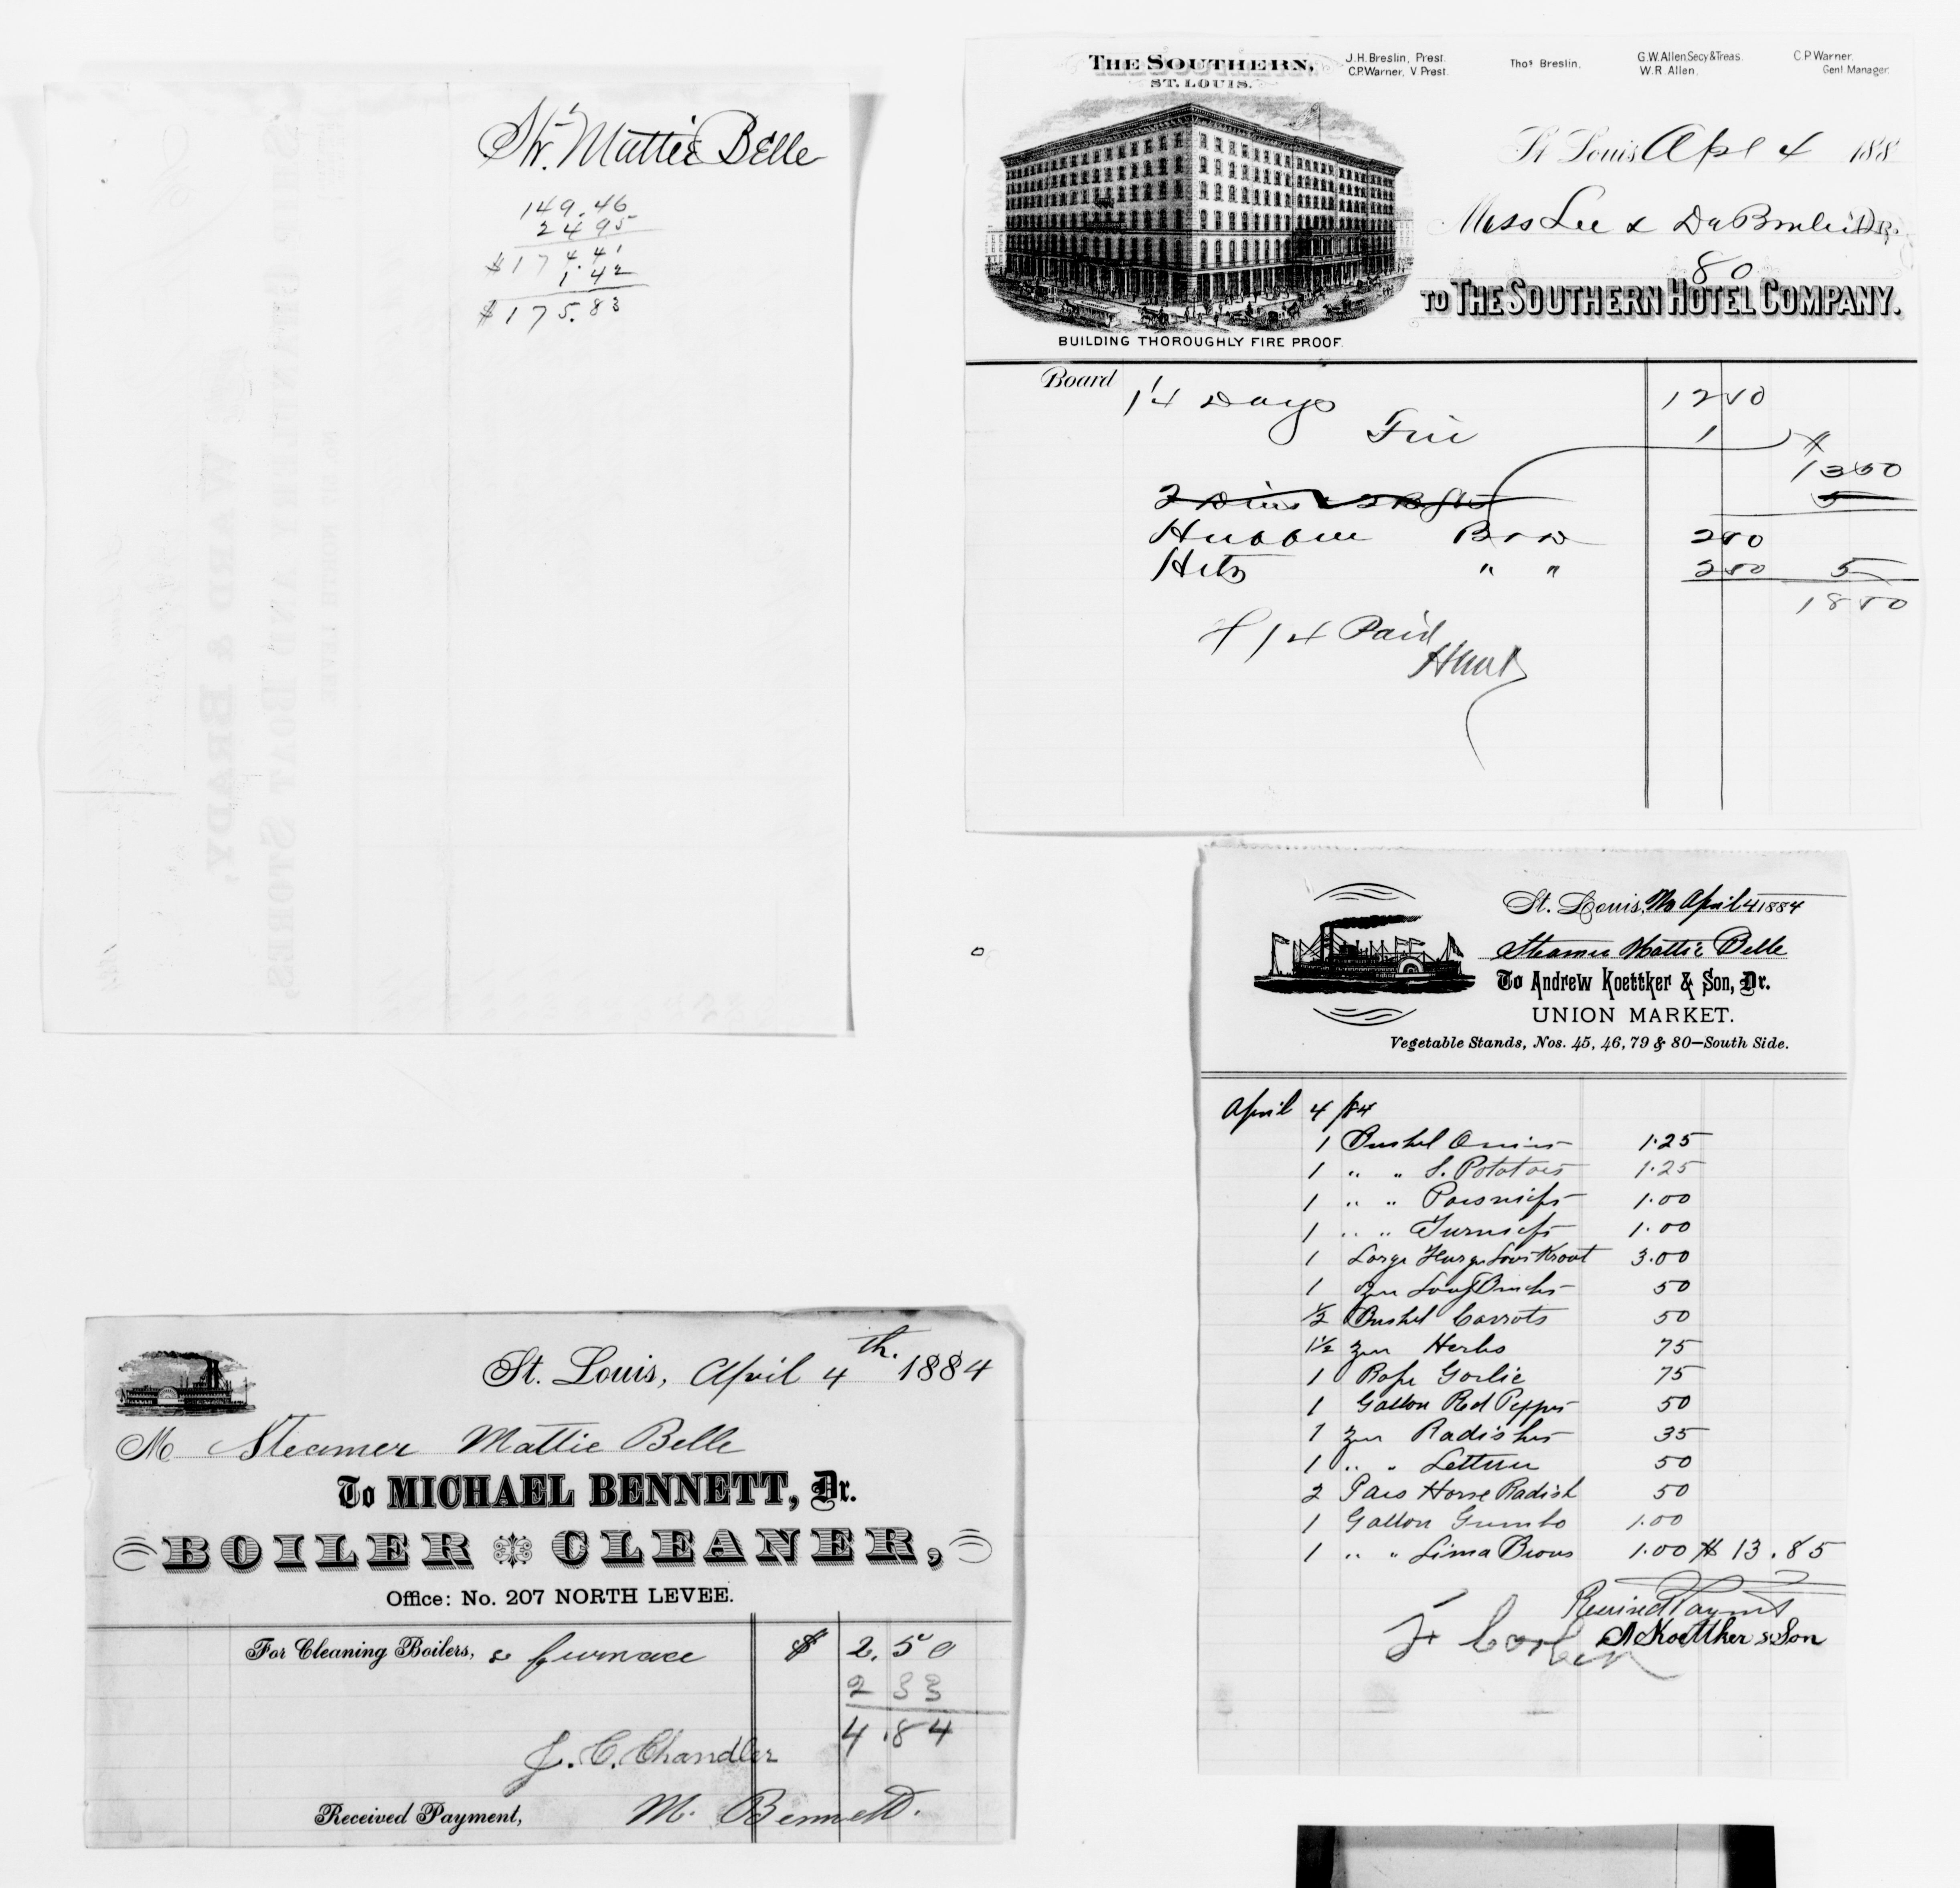 Str. Mattie Belle
149.46
24.95
$174.41
1.42
$175.83
WARD & BRADY,
SHIP CHANDLERY AND BOAT STORES,
NORTH LEVEE
THE SOUTHERN,
ST. LOUIS.
J.H. Breslin, Prest.
C.P. Warner, V. Prest.
Thos Breslin.
G.W. Allen, Secy & Treas.
W.R. Allen.
C.P. Warner.
Genl Manager.
St Louis Apl 4 188
Lee & Dr.
80
TO THE SOUTHERN HOTEL COMPANY.
BUILDING THOROUGHLY FIRE PROOF.
Board 14 Days 12 50
Fire 1
13 50
5
250
" " 250 5
18 50
Paid
St. Louis, Mo April 4 1884
Steamer Mattie Belle
To Andrew Koettker & Son, Dr.
UNION MARKET.
Vegetable Stands, Nos. 45, 46, 79 & 80—South Side.
April 4/84
1 Bushel Onions 1.25
1 " " S. Potatoes 1.25
1 " " Parsnips 1.00
1 " " Turnips 1.00
1 Large Sour Krout 3.00
1 50
1/2 Bushel Carrots 50
1 1/2 Herbs 75
1 Rope Garlic 75
1 Gallon Red Peppers 50
1 Radishes 35
1 " " Lettuce 50
2 Horse Radish 50
1 Gallon Gumbo 1.00
1 " " Lima Beans 1.00 $13.85
Received Payment
A Koettker & Son
St. Louis, April 4th. 1884
M Steamer Mattie Belle
To MICHAEL BENNETT, Dr.
BOILER CLEANER,
Office: No. 207 NORTH LEVEE.
For Cleaning Boilers, & furnace $ 2.50
2 33
4.84
J. C. Chandler
Received Payment, M. Bennett.